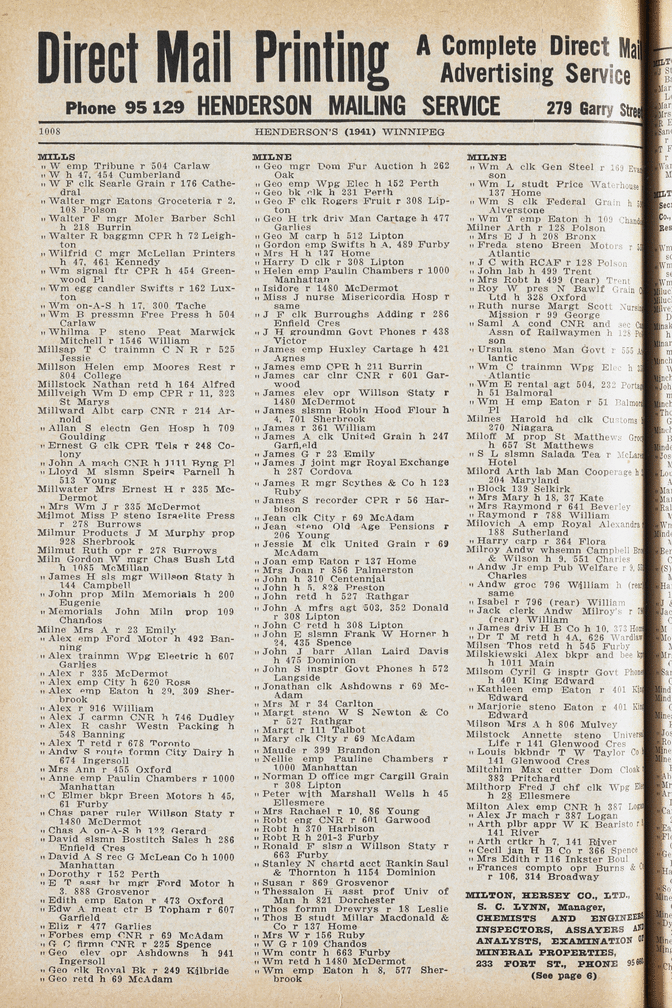 Direct Mail Printing
A Complete Direct Mail
Advertising Service
Phone 95 129 HENDERSON MAILING SERVICE 279 Garry Street
1008 HENDERSON'S (1941) WINNIPEG
MILLS
" W emp Tribune r 504 Carlaw
" W h 47, 454 Cumberland
" W F clk Searle Grain r 176 Cathe-
dral
" Walter mgr Eatons Groceteria r 2,
108 Polson
" Walter F mgr Moler Barber Schl
h 218 Burrin
" Walter R baggmn CPR h 72 Leigh-
ton
" Wilfrid C mgr McLellan Printers
h 47, 461 Kennedy
" Wm signal ftr CPR h 454 Green-
wood Pl
" Wm egg candler Swifts r 162 Lux-
ton
" Wm on-A-S h 17, 300 Tache
" Wm B pressmn Free Press h 504
Carlaw
" Whilma P steno Peat Marwick
Mitchell r 1546 William
Millsap T C trainmn C N R r 525
Jessie
Millson Helen emp Moores Rest r
804 College
Millstock Nathan retd h 164 Alfred
Millveigh Wm D emp CPR r 11, 323
St Marys
Millward Albt carp CNR r 214 Ar-
nold
" Allan S electn Gen Hosp h 709
Goulding
" Ernest G clk CPR Tels r 248 Co-
lony
" John A mach CNR h 1111 Byng Pl
" Lloyd M slsmn Speirs Parnell h
513 Young
Millwater Mrs Ernest H r 335 Mc-
Dermot
" Mrs Wm J r 335 McDermot
Milmot Miss P steno Israelite Press
r 278 Burrows
Milmur Products J M Murphy prop
928 Sherbrook
Milmut Ruth opr r 278 Burrows
Miln Gordon W mgr Chas Bush Ltd
h 1085 McMillan
" James H sls mgr Willson Staty h
144 Campbell
" John prop Miln Memorials h 200
Eugenie
" Memorials John Miln prop 109
Chandos
Milne Mrs A r 23 Emily
" Alex emp Ford Motor h 492 Ban-
ning
" Alex trainmn Wpg Electric h 607
Garlies
" Alex r 335 McDermot
" Alex emp City h 620 Ross
" Alex emp Eaton h 29, 309 Sher-
brook
" Alex r 916 William
" Alex J carmn CNR h 746 Dudley
" Alex R cashr Westn Packing h
548 Banning
" Alex T retd r 678 Toronto
" Andw S route formn City Dairy h
674 Ingersoll
" Mrs Ann r 455 Oxford
" Anne emp Paulin Chambers r 1000
Manhattan
" C Elmer bkpr Breen Motors h 45,
61 Furby
" Chas paper ruler Willson Staty r
1480 McDermot
" Chas A on-A-S h 122 Gerard
" David slsmn Bostitch Sales h 286
Enfield Cres
" David A S rec G McLean Co h 1000
Manhattan
" Dorothy r 152 Perth
" E T asst br mgr Ford Motor h
3, 888 Grosvenor
" Edith emp Eaton r 473 Oxford
" Edw A meat ctr B Topham r 607
Garfield
" Eliz r 477 Garlies
" Forbes emp CNR r 69 McAdam
" G C firmn CNR r 225 Spence
" Geo elev opr Ashdowns h 941
Ingersoll
" Geo clk Royal Bk r 249 Kilbride
" Geo retd h 69 McAdam
MILNE
" Geo mgr Dom Fur Auction h 262
Oak
" Geo emp Wpg Elec h 152 Perth
" Geo bk clk h 231 Perth
" Geo F clk Rogers Fruit r 308 Lip-
ton
" Geo H trk driv Man Cartage h 477
Garlies
" Geo M carp h 512 Lipton
" Gordon emp Swifts h A, 489 Furby
" Mrs H h 137 Home
" Harry D clk r 308 Lipton
" Helen emp Paulin Chambers r 1000
Manhattan
" Isidore r 1480 McDermot
" Miss J nurse Misericordia Hosp r
same
" J F clk Burroughs Adding r 286
Enfield Cres
" J H groundmn Govt Phones r 438
Victor
" James emp Huxley Cartage h 421
Agnes
" James emp CPR h 211 Burrin
" James car clnr CNR r 601 Gar-
wood
" James elev opr Willson Staty r
1480 McDermot
" James slsmn Robin Hood Flour h
4, 701 Sherbrook
" James r 361 William
" James A clk United Grain h 247
Garfield
" James G r 23 Emily
" James J joint mgr Royal Exchange
h 287 Cordova
" James R mgr Scythes & Co h 123
Ruby
" James S recorder CPR r 56 Har-
bison
" Jean clk City r 69 McAdam
" Jean steno Old Age Pensions r
206 Young
" Jessie M clk United Grain r 69
McAdam
" Joan emp Eaton r 137 Home
" Mrs Joan r 856 Palmerston
" John h 310 Centennial
" John h 5, 828 Preston
" John retd h 527 Rathgar
" John A mfrs agt 503, 352 Donald
r 308 Lipton
" John C retd h 308 Lipton
" John E slsmn Frank W Horner h
24, 435 Spence
" John J barr Allan Laird Davis
h 475 Dominion
" John S insptr Govt Phones h 572
Langside
" Jonathan clk Ashdowns r 69 Mc-
Adam
" Mrs M r 34 Carlton
" Margt steno W S Newton & Co
r 527 Rathgar
" Margt r 111 Talbot
" Mary clk City r 69 McAdam
" Maude r 399 Brandon
" Nellie emp Pauline Chambers r
1000 Manhattan
" Norman D office mgr Cargill Grain
r 308 Lipton
" Peter with Marshall Wells h 45
Ellesmere
" Mrs Rachael r 10, 86 Young
" Robt eng CNR r 601 Garwood
" Robt h 370 Harbison
" Robt R h 201-3 Furby
" Ronald F slsmn Willson Staty r
663 Furby
" Stanley N chartd acct Rankin Saul
& Thornton h 1154 Dominion
" Susan r 869 Grosvenor
" Thessalon H asst prof Univ of
Man h 821 Dorchester
" Thos formn Drewrys r 18 Leslie
" Thos B studt Millar Macdonald &
Co r 137 Home
" Mrs W r 156 Ruby
" W G r 109 Chandos
" Wm contr h 663 Furby
" Wm retd h 1480 McDermot
" Wm emp Eaton h 8, 577 Sher-
brook
MILNE
" Wm A clk Gen Steel r 169
son
" Wm L studt Price Waterhouse
137 Home
" Wm S clk Federal Grain h
Alverstone
" Wm T emp Eaton h 109 Chandos
Milner Arth r 128 Polson
" Mrs E J h 208 Bronx
" Freda steno Breen Motors r
Atlantic
" J C with RCAF r 128 Polson
" John lab h 499 Trent
" Mrs Robt h 499 (rear) Trent
" Roy W pres N Bawlf Grain
Ltd h 328 Oxford
" Ruth nurse Margt Scott Nursing
Mission r 99 George
" Saml A cond CNR and sec
Assn of Railwaymen h 128
son
" Ursula steno Man Govt r 555
lantic
" Wm C trainmn Wpg Elec h
Atlantic
" Wm E rental agt 504, 232 Portage
h 51 Balmoral
" Wm H emp Eaton r 51 Balmoral
Pl
Milnes Harold hd clk Customs
270 Niagara
Miloff M prop St Matthews Groc
h 657 St Matthews
" S L slsmn Salada Tea r McLaren
Hotel
Milord Arth lab Man Cooperage h
204 Maryland
" Block 139 Selkirk
" Mrs Mary h 18, 37 Kate
" Mrs Raymond r 641 Beverley
" Raymond r 788 William
Milovich A emp Royal Alexandra r
188 Sutherland
" Harry carp r 364 Flora
Milroy Andw whsemn Campbell
& Wilson h 9, 551 Charles
" Andw Jr emp Pub Welfare r 9,
Charles
" Andw groc 796 William h (rear)
same
" Isabel r 796 (rear) William
" Jack clerk Andw Milroy's r
(rear) William
" James driv H B Co h 10, 373
" Dr T M retd h 4A, 626 Wardlaw
Milsen Thos retd h 545 Furby
Milskiewski Alex bkpr and bee
h 1011 Main
Milsom Cyril G insptr Govt Phones
h 401 King Edward
" Kathleen emp Eaton r 401 King
Edward
" Marjorie steno Eaton r 401
Edward
Milson Mrs A h 806 Mulvey
Milstock Annette steno Universal
Life r 141 Glenwood Cres
" Louis bkbndr T W Taylor Co
141 Glenwood Cres
Miltchim Max cutter Dom Cloak
383 Pritchard
Milthorp Fred J chf clk Wpg
h 28 Ellesmere
Milton Alex emp CNR h 387 Logan
" Alex Jr mach r 387 Logan
" Arth plbr appr W K Bearisto r
141 River
" Arth crtkr h 7, 141 River
" Cecil jan H B Co r 366 Spence
" Mrs Edith r 116 Inkster Boul
" Frances compto opr Burns &
r 106, 314 Broadway
MILTON, HERSEY CO., LTD.,
S. C. LYNN, Manager,
CHEMISTS AND ENGINEERS
INSPECTORS, ASSAYERS AND
ANALYSTS, EXAMINATION OF
MINERAL PROPERTIES,
233 FORT ST., PHONE
(See page 6)